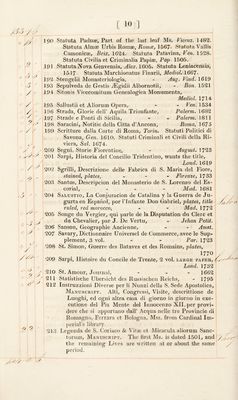 ( 10 )
190 Statuta Paduæ, Part of the last leaf Ms. Vicenz. 1482.
Statuta Almæ Urbis Romæ, Romæ, 1567. Statuta Vallis
Camonicæ, Brix. 1624. Statuta Patavina, Ven. 1528.
Statuta Civilia et Criminalia Papiæ, Pap. 1505.
191 Statuta Nova Genuensis, 1605. Statuta Lentiacensia,
1537. Statuta Marchionatus Finarii, Mediol. 1667.
192 Stengelii Monasteriologia, Aug. Vind. 1619
193 Sepulveda de Gestis Ægidii Albornotii, Bon. 1521
194 Sitonis Vicecomitum Genealogica Monumenta,
Mediol. 1714
195 Sallustii et Aliorum Opera, Ven. 1558
196 Strada, Glorie dell' Aquila Trionfante, Palerm. 1682
197 Strade e Ponti di Sicilia, Palerm. 1811
198 Saracini, Notitie della Citta d'Ancona, Roma, 1675
199 Scritture dalla Corte di Roma, Torin. Statuti Politici di
Savona, Gen. 1610. Statuti Criminali et Civili della Ri-
viera, Sal. 1674.
200 Segni, Storie Fiorentine, August. 1723
201 Sarpi, Historia del Concilio Tridentino, wants the title,
Lond. 1619
202 Sgrilli, Descrizione della Fabrica di S. Maria del Fiore,
stained, plates, Firenze, 1733
203 Santos, Descripcion del Monasterio de S. Lorenzo del Es-
corial, Mad. 1681
204 Salustio, La Conjuracion de Catalina y la Guerra de Ju-
gurta en Español, por l'Infante Don Gabriel, plates, title
ruled, red morocco, Mad. 1772
205 Songe du Vergier, qui parle de la Disputation du Clerc et
du Chevalier, par J. De Vertu, Jehan Petit.
206 Sanson, Geographie Ancienne, Anst.
207 Savary, Dictionnaire Universel de Commerce, avec le Sup-
plement, 3 vol. Par. 1723
208 St. Simon, Guerre des Bataves et des Romains, plates,
1770
209 Sarpi, Histoire du Concile de Trente, 2 vol. LARGE PAPER,
Lond. 1732
210 St. Amour, Journal, 1662
211 Statistiche Übersicht des Russischen Reichs, 1795
212 Instruzioni Diverse per li Nunzi della S. Sede Apostolica,
Manuscript. Atti, Congressi, Visite, descrittione de
Luoghi, ed ogni altra cosa di giorno in giorno in exe-
cutione del Pia Mente del Innocenzo XII. per provi-
dere che si apportano dall' Acqua nelle tre Provincie di
Romagna, Ferrara et Bologna, Mss. from Cardinal Im-
periali's library.
213 Legenda de S. Coriaco & Vitæ et Miracula aliorum Sanc-
torum, Manuscript. The first Ms. is dated 1501, and
the remaining Lives are written at or about the same
period.